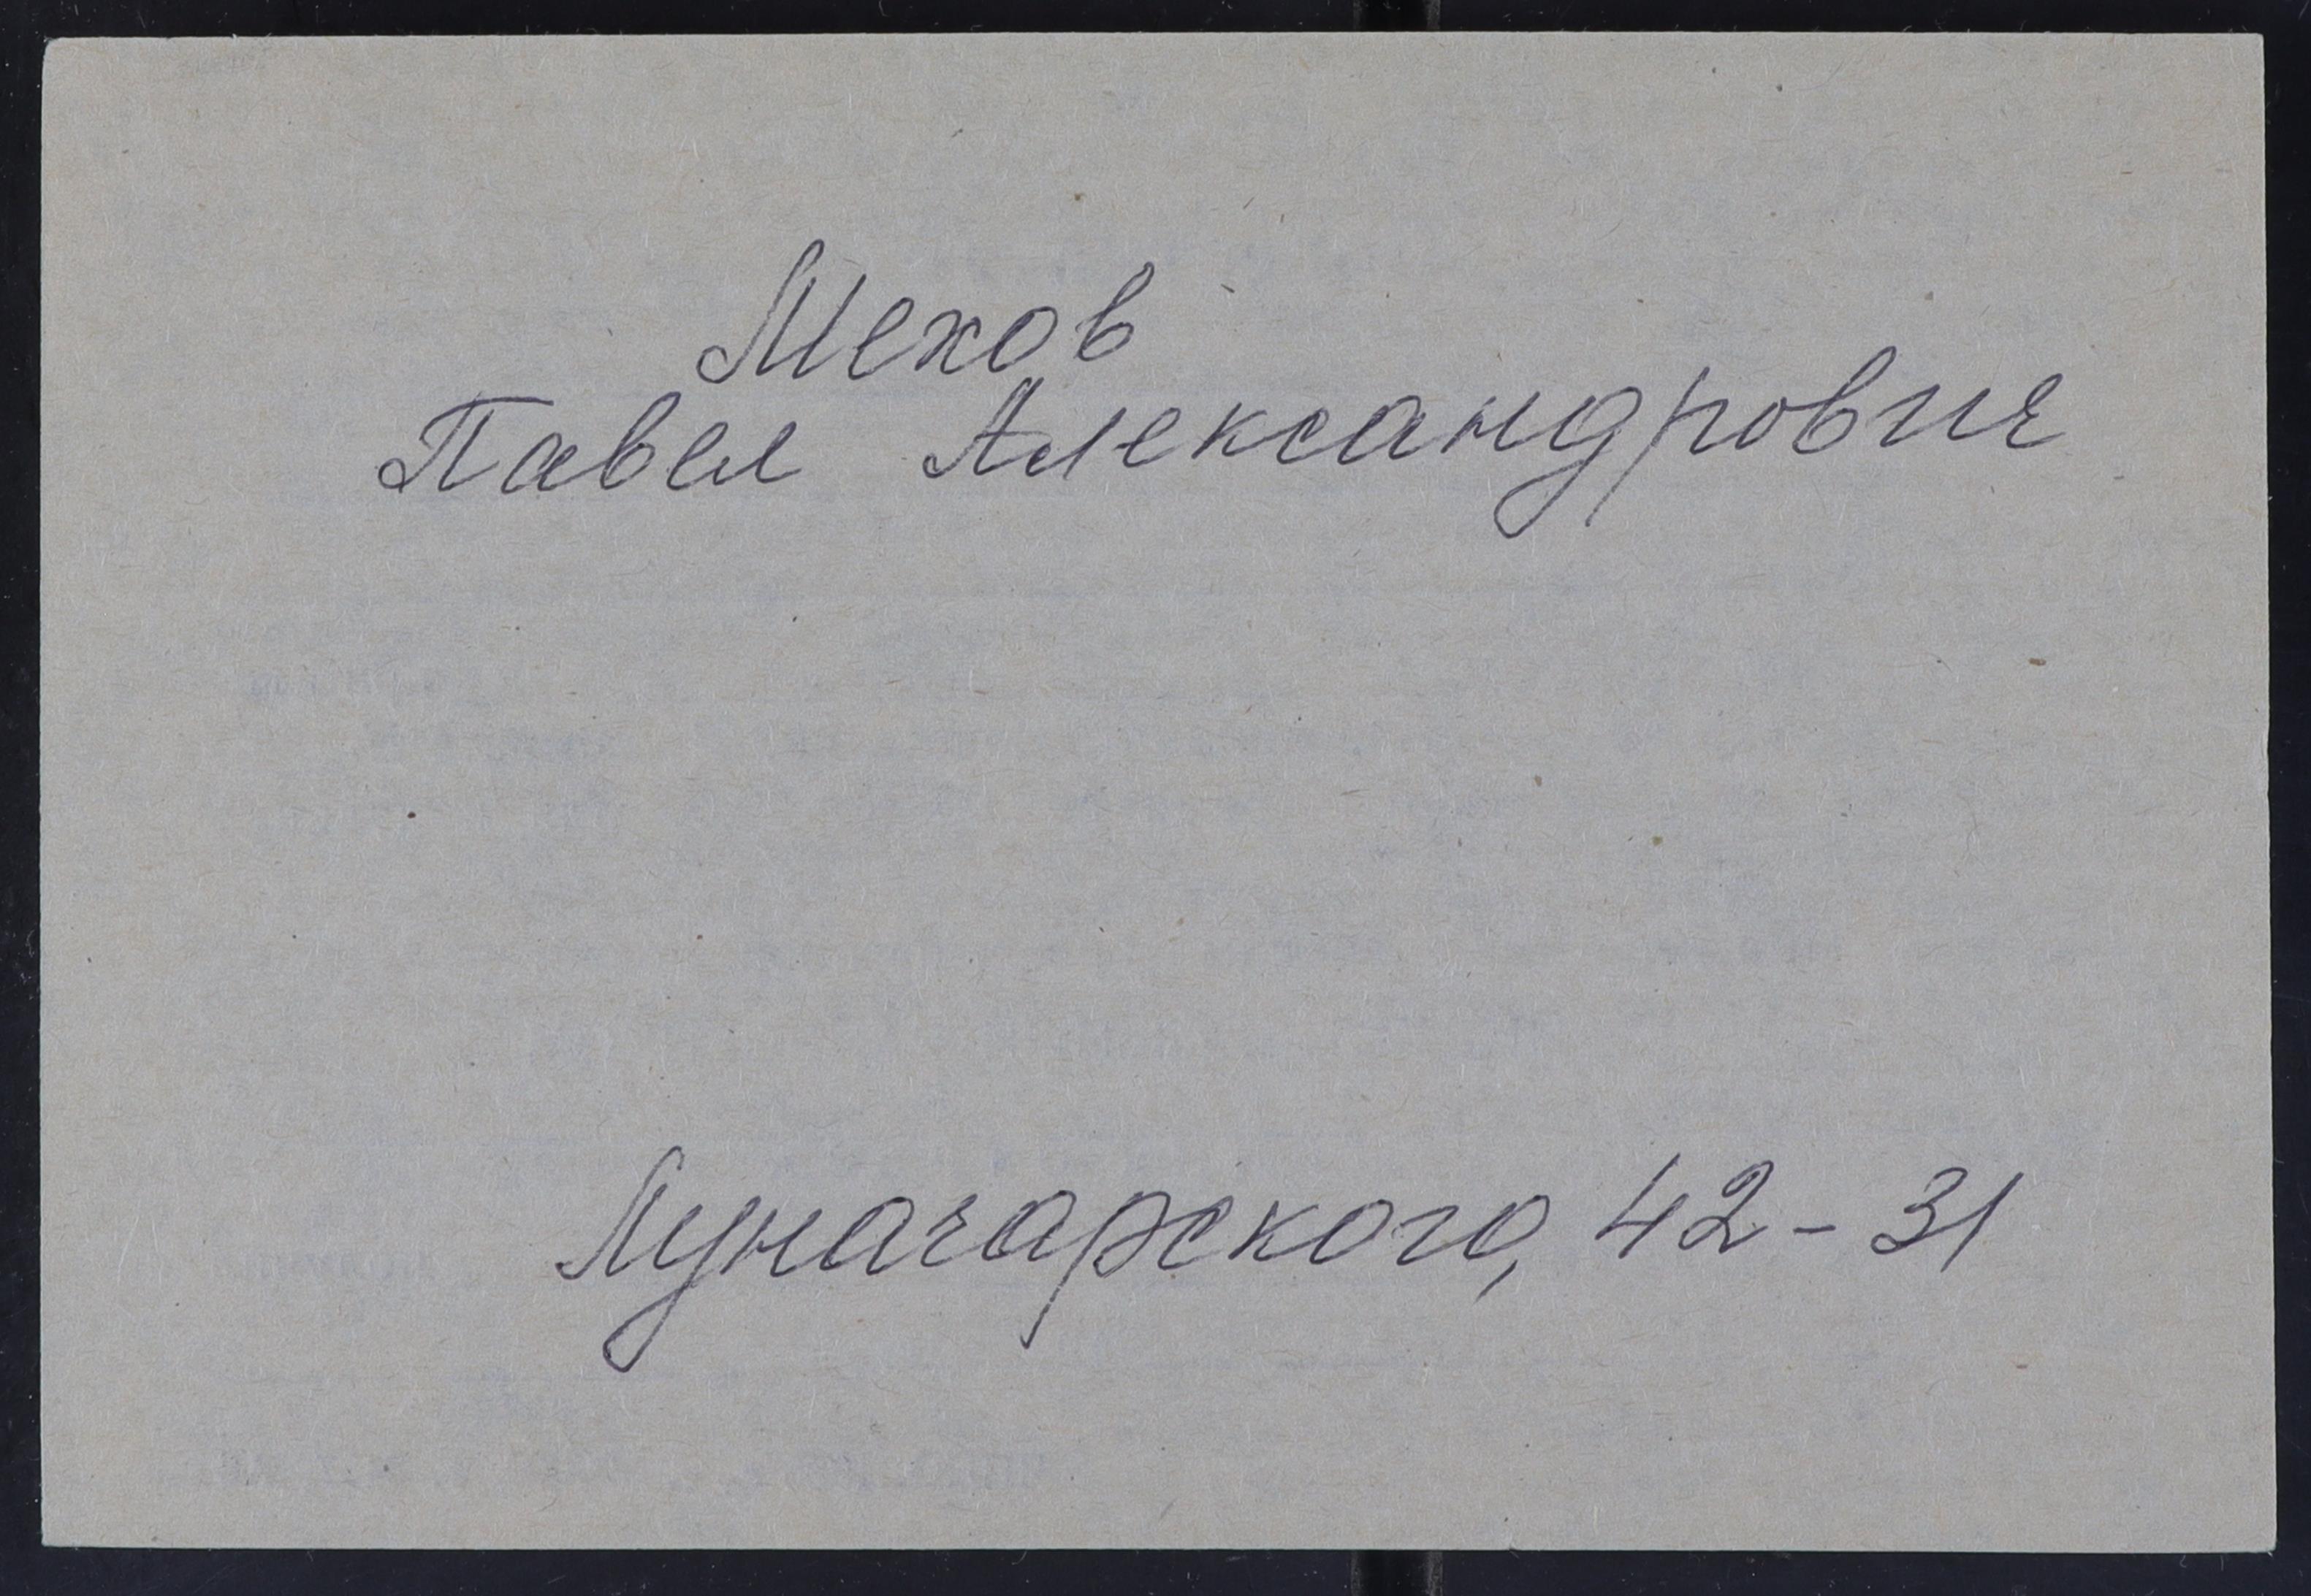 Мехов
Павел Александрович
Луначарского, 42 - 31